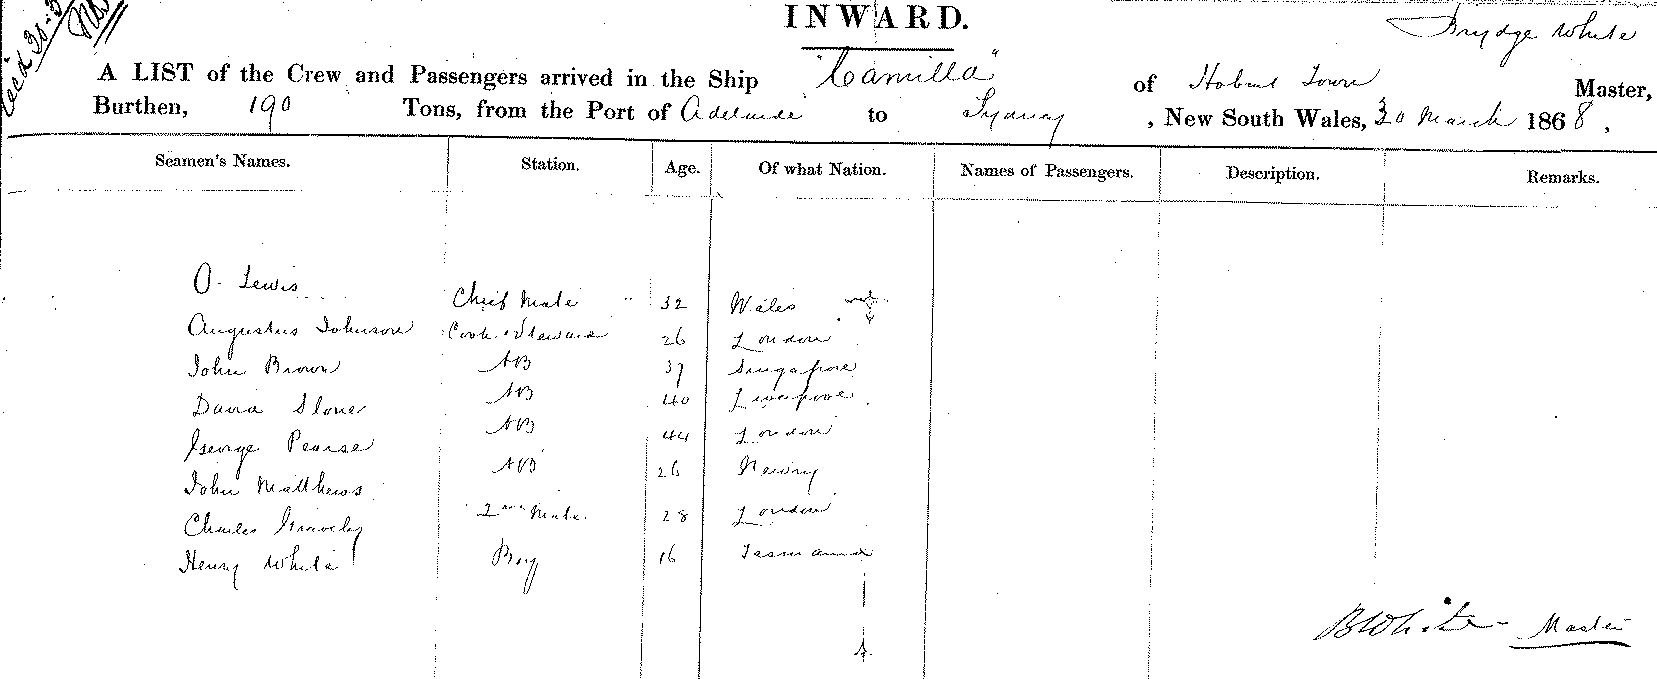 INWARD.
Brydge White
A LIST of the Crew and Passengers arrived in the Ship "Camilla" of Hobart Town Master,
Burthen, 190 Tons, from the Port of Adelaide to Sydney, New South Wales, 30 March 1868,
Seamen's Names. Station. Age. Of what Nation. Names of Passengers. Description. Remarks.
O. Lewis Chief Mate 32 Wales
Augustus Johnson Cook & Steward 26 London
John Brown AB 37 Singapore
David Stone AB 40 Liverpool
George Pearse AB 44 London
John Matthews AB 26 Newry
Charles Gravely 2nd Mate 28 London
Henry White Boy 16 Tasmania
B White - Master